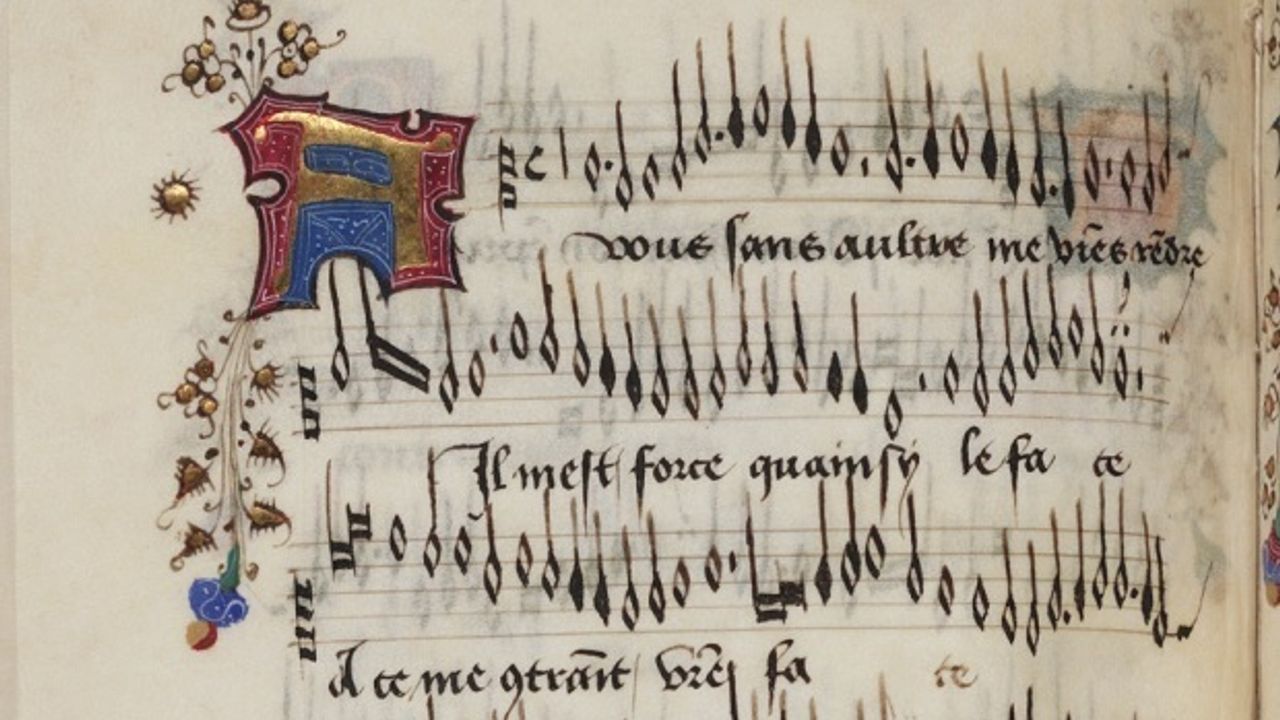 A vous sans aultre me vie͂s re͂dre
Il mest force quainsy le fa ce
A ce me ꝯtrai͂t vr͂e fa ce